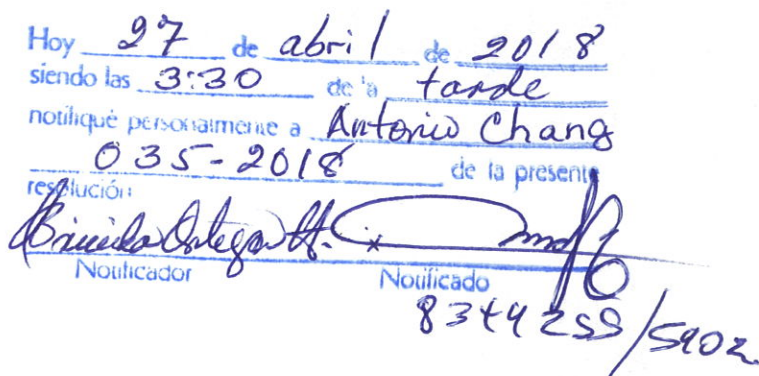 Hoy 27 de abril de 2018
siendo las 3:30 de la tarde
notifiqué personalmente a Antonio Chang
035-2018 de la presente
resolución
Ortega H. x
Notificador Notificado